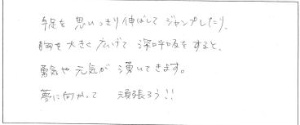 手足を思いっきり伸ばしてジャンプしたり、
胸を大きく広げて深呼吸をすると、
勇気や元気が湧いてきます。
夢に向かって 頑張ろう!!